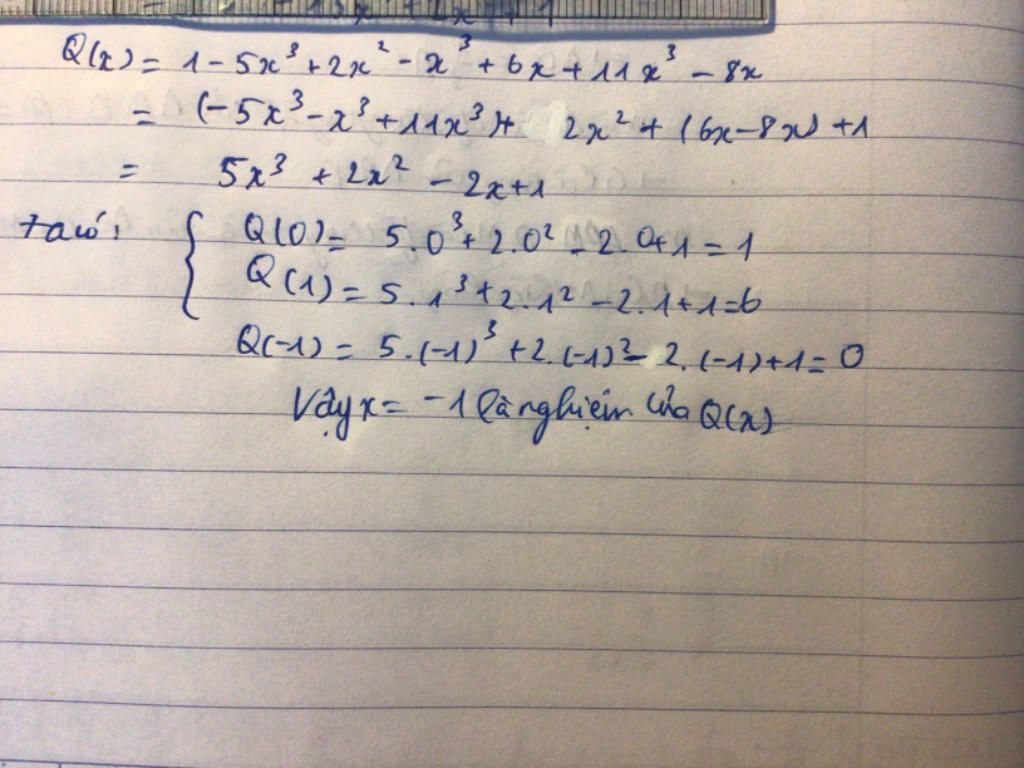 Q(x) = 1 - 5x³ + 2x² - x³ + 6x + 11x³ - 8x
= (-5x³ - x³ + 11x³) + 2x² + (6x - 8x) + 1
= 5x³ + 2x² - 2x + 1
ta có: { Q(0) = 5.0³ + 2.0² - 2.0 + 1 = 1
Q(1) = 5.1³ + 2.1² - 2.1 + 1 = 6
Q(-1) = 5.(-1)³ + 2.(-1)² - 2.(-1) + 1 = 0
Vậy x = -1 là nghiệm của Q(x)